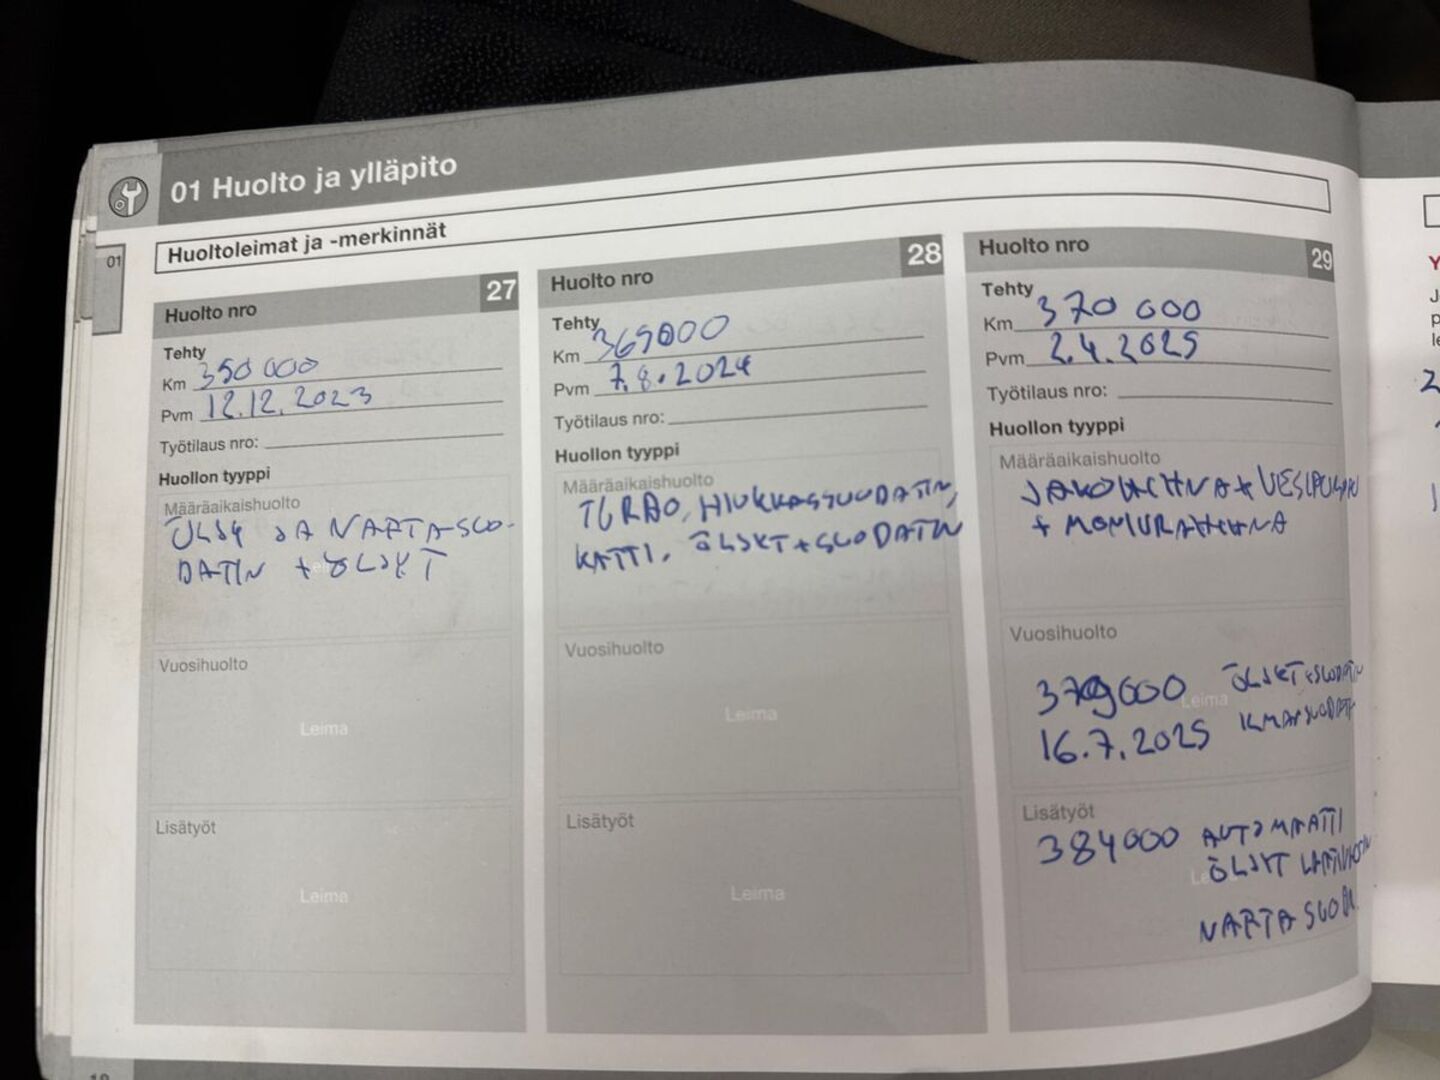 01 Huolto ja ylläpito
01
Huoltoleimat ja -merkinnät
Huolto nro 27
Tehty
Km 350 000
Pvm 12.12.2023
Työtilaus nro:
Huollon tyyppi
Määräaikaishuolto
ÖLJY JA NAFTASUO-
DATIN + ÖLJYT
Leima
Vuosihuolto
Leima
Lisätyöt
Leima
Huolto nro 28
Tehty
Km 369000
Pvm 7.8.2024
Työtilaus nro:
Huollon tyyppi
Määräaikaishuolto
TURBO, HIUKKASSUODATIN,
KATTI. ÖLJYT+SUODATIN
Vuosihuolto
Leima
Lisätyöt
Leima
Huolto nro 29
Tehty
Km 370 000
Pvm 2.4.2025
Työtilaus nro:
Huollon tyyppi
Määräaikaishuolto
JAKOHIHNA + VESIPUMPPU
+ MONIURAHIHNA
Vuosihuolto
379000 ÖLJYT+SUODATIN
Leima
16.7.2025 ILMANSUODATIN
Lisätyöt
384000 AUTOMAATTI
ÖLJYT
NAFTASUOD.